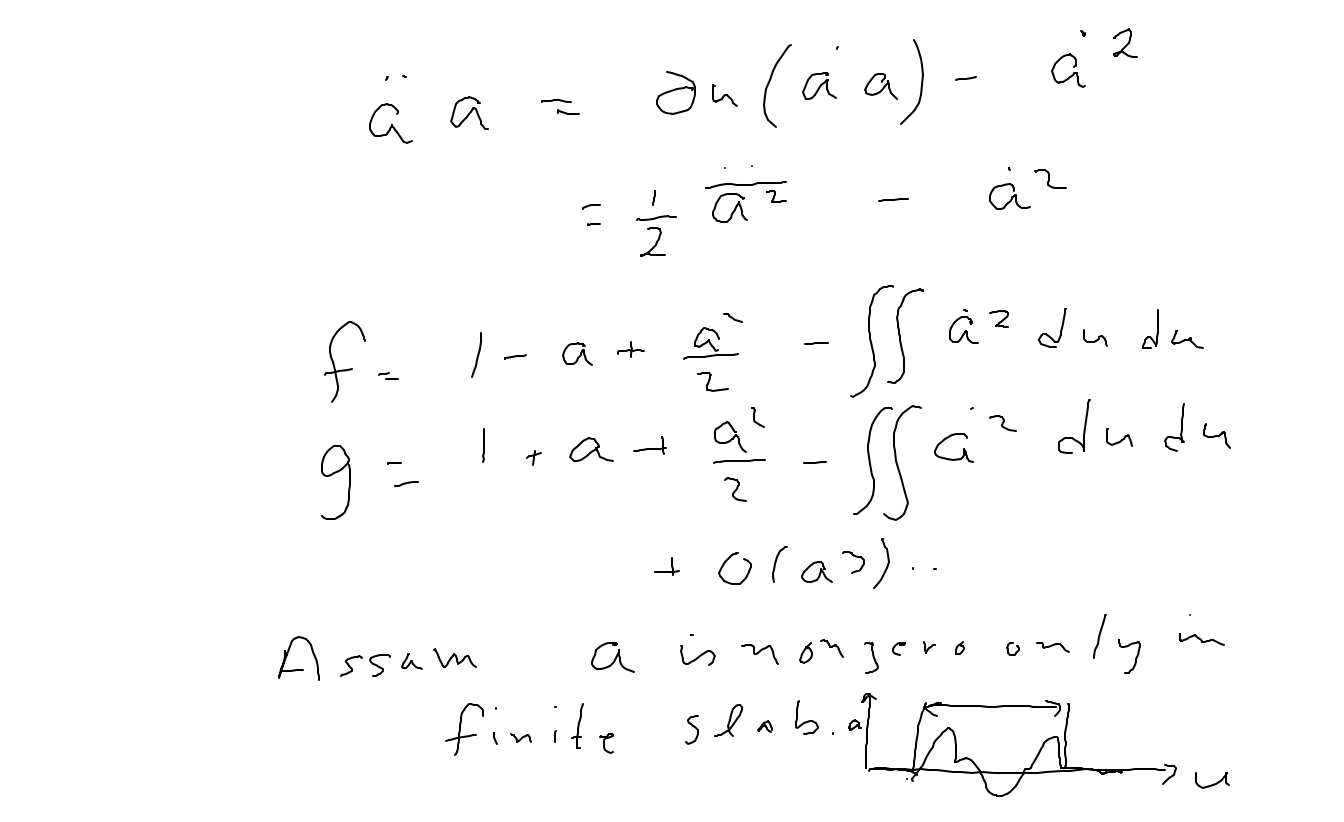 ä a = ∂u(ȧ a) - ȧ²
= 1/2 \ddot{\overline{a²}} - ȧ²
f = 1 - a + a²/2 - ∬ ȧ² du du
g = 1 + a + a²/2 - ∬ ȧ² du du
+ O(a³)..
Assum a is nonzero only in
finite slab. a
u